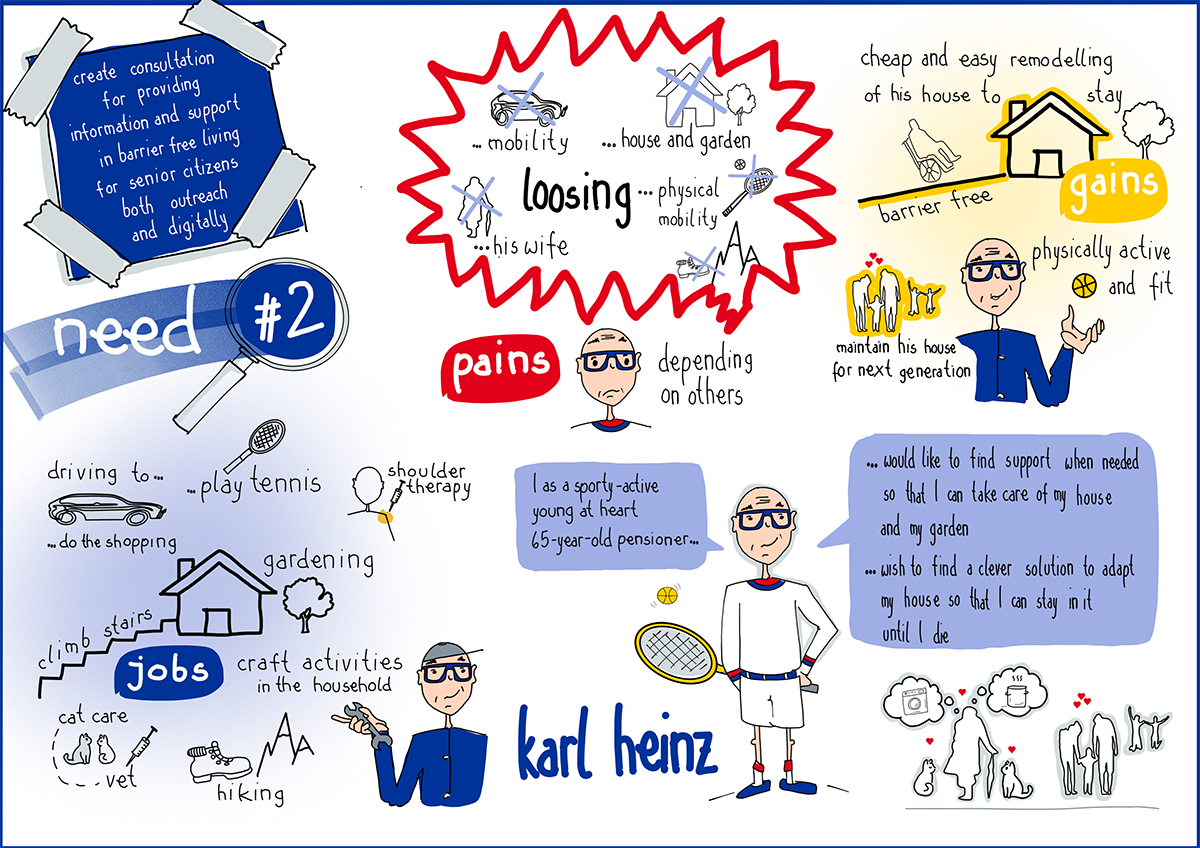 create consultation
for providing
information and support
in barrier free living
for senior citizens
both outreach
and digitally
need #2
... mobility
... house and garden
loosing
... physical
mobility
... his wife
pains
depending
on others
cheap and easy remodelling
of his house to stay
barrier free
gains
physically active
and fit
maintain his house
for next generation
driving to...
... play tennis
shoulder
therapy
... do the shopping
gardening
climb stairs
jobs
craft activities
in the household
cat care
vet
hiking
I as a sporty-active
young at heart
65-year-old pensioner...
... would like to find support when needed
so that I can take care of my house
and my garden
... wish to find a clever solution to adapt
my house so that I can stay in it
until I die
karl heinz